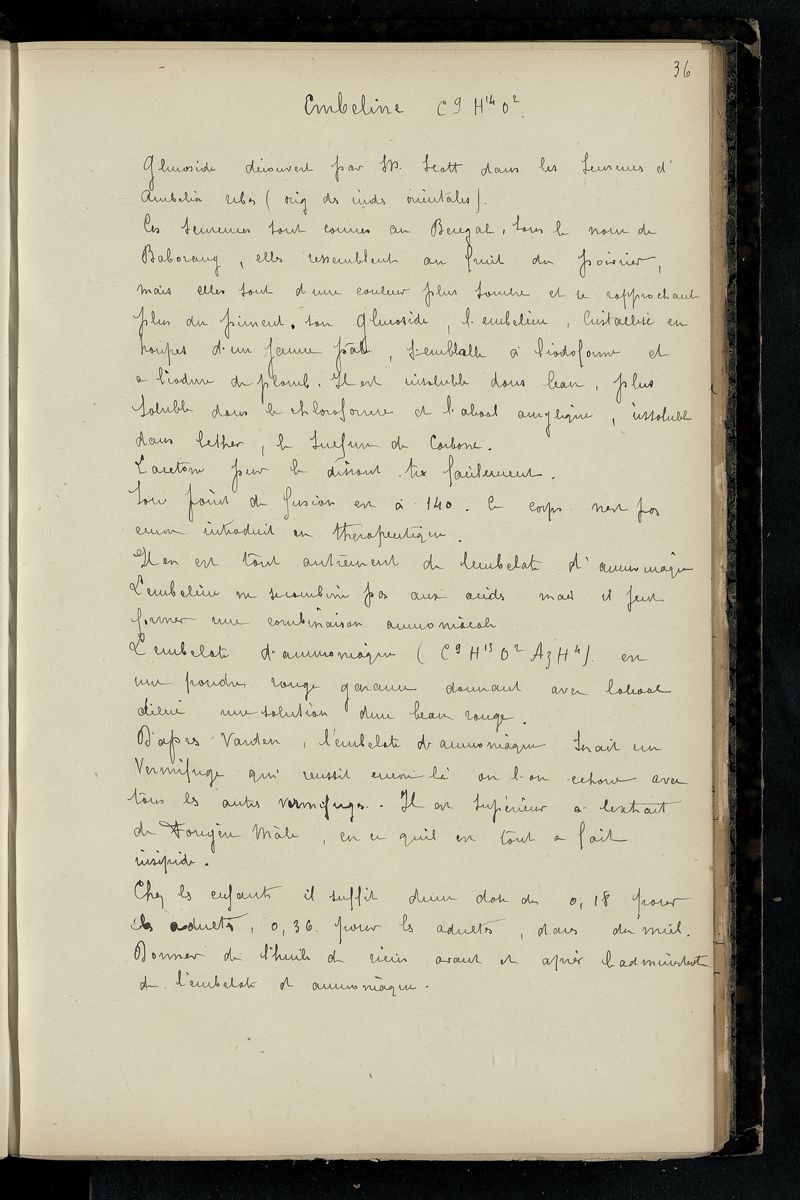 36
Embeline C9 H14 O2.
Glucoside découvert par M. Scott dans les Semences d'
Embelia ribes ( orig des indes orientales ).
Ces Semences sont connues au Bengal, sous le nom de
Baborang, elles ressemblent au fruit du poivrier,
mais elles sont d'une couleur plus sombre et se rapprochant
plus du piment. son Glucoside, l'embeline, Cristallise en
houpes d'un jaune pâle, semblable à l'iodoforme et
a l'iodure de plomb. Il est insoluble dans l'eau, plus
soluble dans le chloroforme et l'alcool amylique, insoluble
dans l'ether, le Sulfure de Carbone.
L'acetone pur le dissout très facilement.
Son point de fusion est à 140. Ce corps n'est pas
encore introduit en thérapeutique.
Il en est tout autrement de l'embelate d'ammoniaque
L'embeline ne se combine pas aux acides mais il peut
former une combinaison ammoniacale
L'embelate d'ammoniaque ( C9 H13 O2 AzH4 ). est
une poudre rouge garance donnant avec l'alcool
dilué une solution d'un beau rouge.
D'après Warden, l'embelate d'ammoniaque serait un
Vermifuge qui reussit encore là ou l'on echoue avec
tous les autres vermifuges. Il est supérieur a l'extrait
de Fougère Mâle, en ce qu'il est tout a fait
insipide.
Chez les enfants il suffit d'une dose de 0,18 pour
les adultes, 0,36 pour les adultes, dans du miel.
Donner de l'huile de ricin avant et après l'administrat
de l'embelate d'ammoniaque.